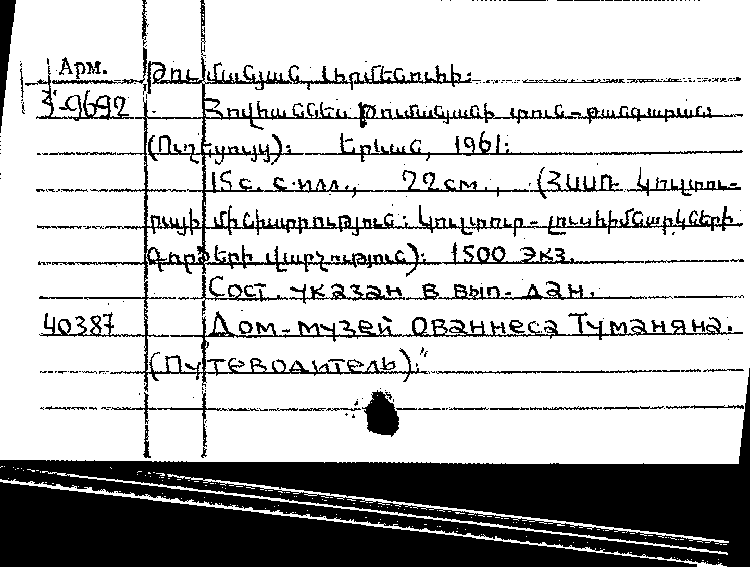 Арм. Թումանյան, Նիմենուհի:
3-9692 Հովհաննես Թումանյանի տուն-թանգարան:
(Ուղեցույց): Երևան, 1961:
15 с. с илл., 22 см., (ՀՍՍՌ Կուլտու-
րայի մինիստրություն: Կուլտուր-լուսհիմնարկների
Գործերի վարչություն): 1500 экз.
Сост. указан в вып. дан.
40387 Дом-музей Ованнеса Туманяна.
(Путеводитель):"